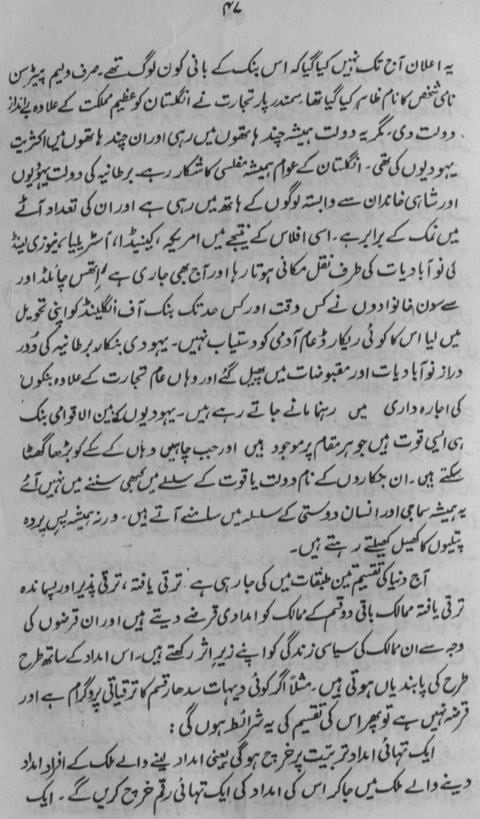 ۴۷
یہ اعلان آج تک نہیں کیا گیا کہ اس بنک کے بانی کون لوگ تھے۔ صرف ولیم پیٹرسن
نامی شخص کا نام ظاہر کیا گیا تھا۔ سمندر پار تجارت نے انگلستان کو عظیم مملکت کے علاوہ بے انداز
دولت دی۔ مگر یہ دولت ہمیشہ چند ہاتھوں میں رہی اور ان چند ہاتھوں میں اکثریت
یہودیوں کی تھی۔ انگلستان کے عوام ہمیشہ مفلسی کا شکار رہے۔ برطانیہ کی دولت یہودیوں
اور شاہی خاندان سے وابستہ لوگوں کے ہاتھ میں رہی ہے اور ان کی تعداد آٹے
میں نمک کے برابر ہے۔ اسی افلاس کے نتیجے میں امریکہ، کینیڈا، آسٹریلیا، نیوزی لینڈ
کی نو آبادیات کی طرف نقل مکانی ہوتا رہا اور آج بھی جاری ہے۔ راتھس چائلڈ اور
سے سون خانوادوں نے کس وقت اور کس حد تک بنک آف انگلینڈ کو اپنی تحویل
میں لیا اس کا کوئی ریکارڈ عام آدمی کو دستیاب نہیں۔ یہودی بنکار برطانیہ کی دُور
دراز نو آبادیات اور مقبوضات میں پھیل گئے اور وہاں عام تجارت کے علاوہ بنکوں
کی اجارہ داری میں رہنما مانے جاتے رہے ہیں۔ یہودیوں کے بین الاقوامی بنک
ہی ایسی قوت ہیں جو ہر مقام پر موجود ہیں اور جب چاہیں وہاں کے سکے کو بڑھا گھٹا
سکتے ہیں۔ ان بنکاروں کے نام دولت یا قوت کے سلسلے میں کبھی سننے میں نہیں آئے
یہ ہمیشہ سماجی اور انسان دوستی کے سلسلہ میں سامنے آتے ہیں۔ ورنہ ہمیشہ پس پردہ
پتلیوں کا کھیل کھیلتے رہتے ہیں۔
آج دنیا کی تقسیم تین طبقات میں کی جا رہی ہے ترقی یافتہ، ترقی پذیر اور پسماندہ
ترقی یافتہ ممالک باقی دو قسم کے ممالک کو امدادی قرضے دیتے ہیں اور ان قرضوں کی
وجہ سے ان ممالک کی سیاسی زندگی کو اپنے زیرِ اثر رکھتے ہیں۔ اس امداد کے ساتھ طرح
طرح کی پابندیاں ہوتی ہیں۔ مثلاً اگر کوئی دیہات سدھار قسم کا ترقیاتی پروگرام ہے اور
قرضہ نہیں ہے تو پھر اس کی تقسیم کی یہ شرائط ہوں گی:
ایک تہائی امداد تربیت پر خرچ ہو گی یعنی امداد لینے والے ملک کے افراد امداد
دینے والے ملک میں جا کر اس کی امداد کی ایک تہائی رقم خرچ کریں گے۔ ایک